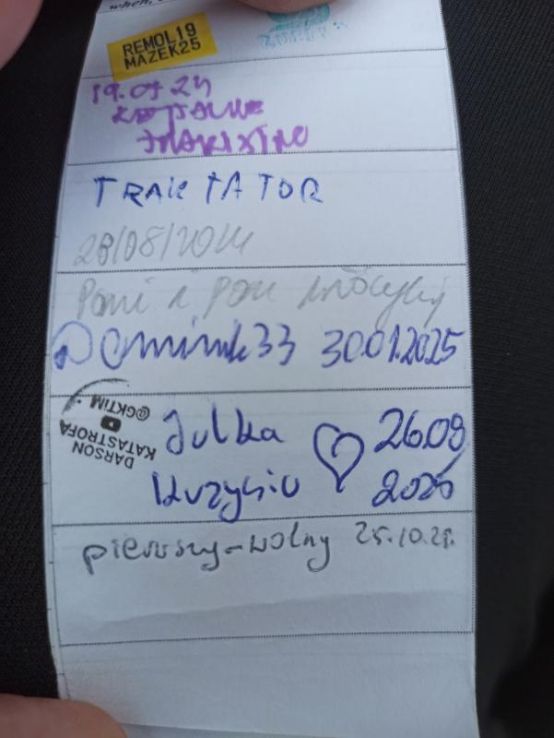 when,
REMOL19
MAZEK25
19.09.24
TRAKTATOR
28/08/2024
Pani i Pan
Dominik33 30.01.2025
DARSON
KATASTROFA
@GKTIM
Julka 26.08
Krzysiu 2025
pierwszy-wolny 25.10.25.